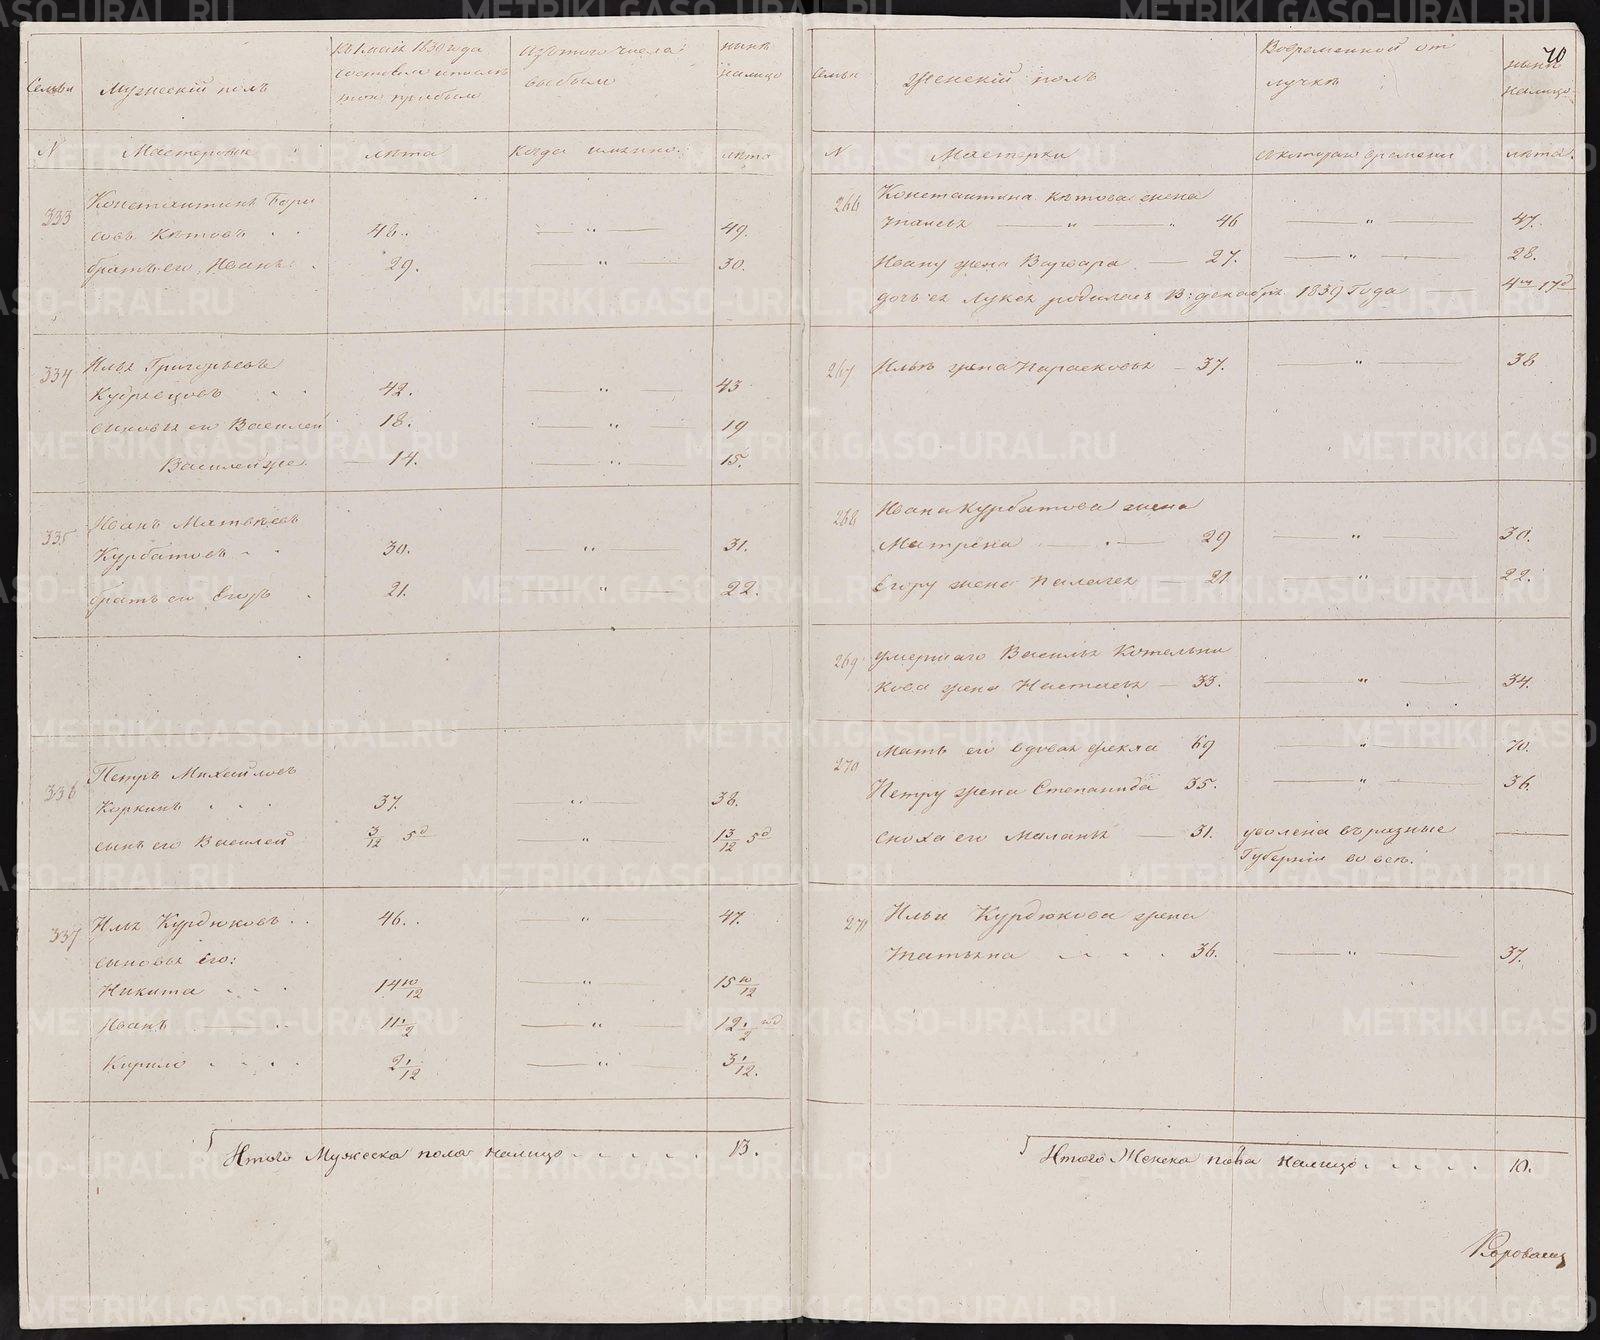 Семьи
Мужескій полъ
Къ 1 маія 1839 года
состояло и послѣ
того прибыло
Изъ того числа
выбыло
нынѣ
налицо
N
Мастеровые
лѣта
Когда именно.
лѣта
333
Константинъ Бори
совъ Кѣтовъ
48.
49.
братъ его Иванъ
29.
30.
334
Илья Григорьевъ
Кудрявцовъ
42.
43
сыновья его Василей
18.
19
Василей же
14.
15.
335
Иванъ Матвѣевъ
Курбатовъ
30.
31.
братъ его Егоръ
21.
22.
336
Петръ Михайловъ
Коркинъ
37.
38.
сынъ его Василей
3/12 5д
13/12 5д
337
Илья Курдюковъ
46.
47.
сыновья его:
Никита
14 10/12
15 10/12
Иванъ
11 1/2
12 1/2 год
Кирило
2 1/12
3 1/12.
Итого Мужеска пола налицо
13.
70
Семьи
Женскій полъ
Во временной от
лучкѣ
нынѣ
налицо
N
Мастерки
съ котораго времени
лѣта.
266
Константина Кѣтова жена
46
47.
Ивану жена Варвара
27.
28.
дочь ея Лукея родилась В: декабря 1839 года
4м 17д
267
Ильѣ жена Парасковья
37.
38
268
Ивана Курбатова жена
Матрена
29
30.
Егору жена Палагея
21
22.
269
умершаго Василья Котельни
кова жена Настасья
33.
34.
270
Мать его вдова Фекла
69
70.
Петру жена Степанида
35.
36.
сноха его Маланья
31.
уволена въ разные
Губерніи
271
Ильи Курдюкова жена
Татьяна
36.
37.
Итого Женска пола налицо
10.
METRIKI.GASO-URAL.RU